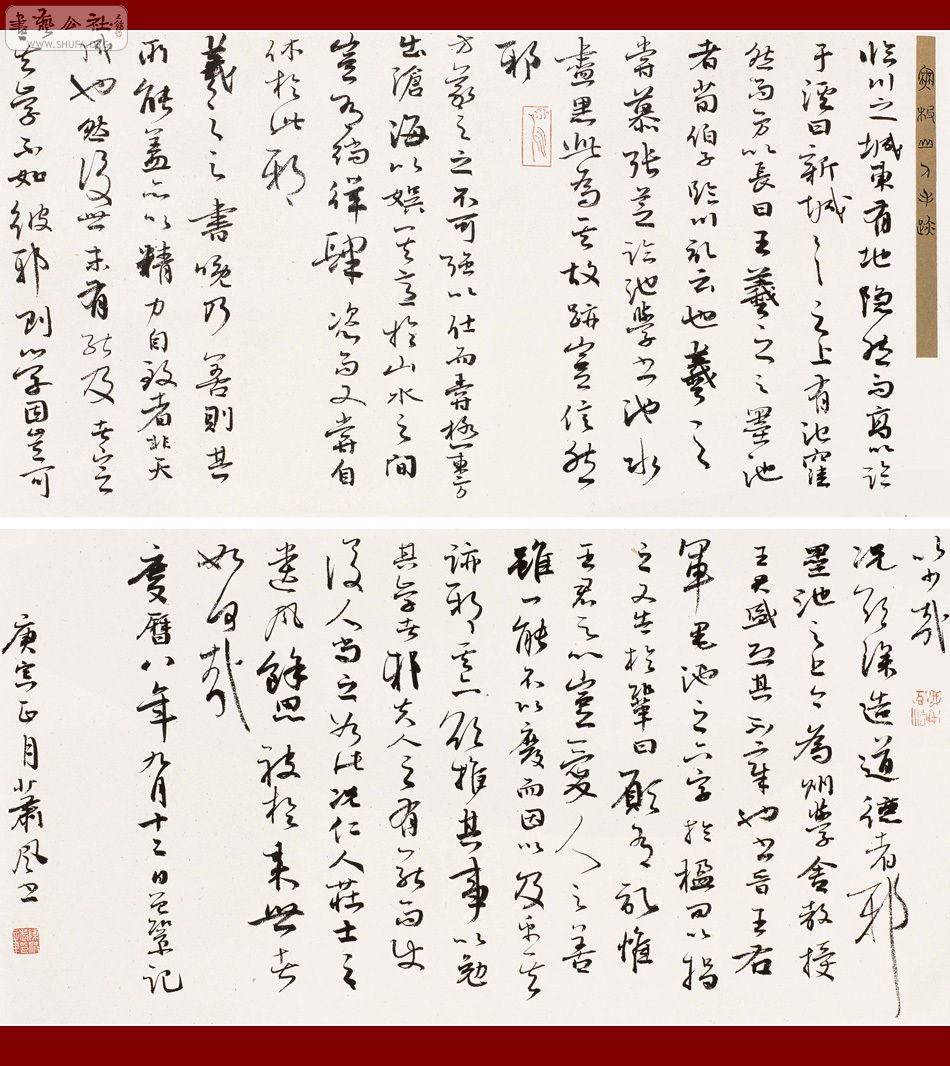 書藝公社
WWW.SHUFA.ORG
临川之城東有地隐然而高以临
于溪曰新城新城之上有池窪
然而方以長曰王羲之之墨池
者荀伯子临川记云也羲之
嘗慕张芝临池學书池水
盡黑此為其故跡豈信然
邪
方羲之之不可强以仕而嘗極東方
出滄海以娱其意於山水之间
豈有徜徉肆恣而又嘗自
休於此邪
羲之之書晚乃善則其
所能蓋亦以精力自致者非天
成也然後世未有能及者豈
其学不如彼邪则学固豈可
以少哉
况欲深造道德者邪
墨池之上今為州學舍教授
王君盛恐其不章也书晋王右
軍墨池之六字於楹间以揭
之又告於鞏曰願有记惟
王君之心豈愛人之善
雖一能不以廢而因以及乎其
跡邪其亦欲推其事以勉
其学者邪夫人之有能而使
後人尚之如此况仁人莊士之
遺風餘思被於来世者
如何哉
慶曆八年九月十二日曾鞏记
庚寅正月萧风书